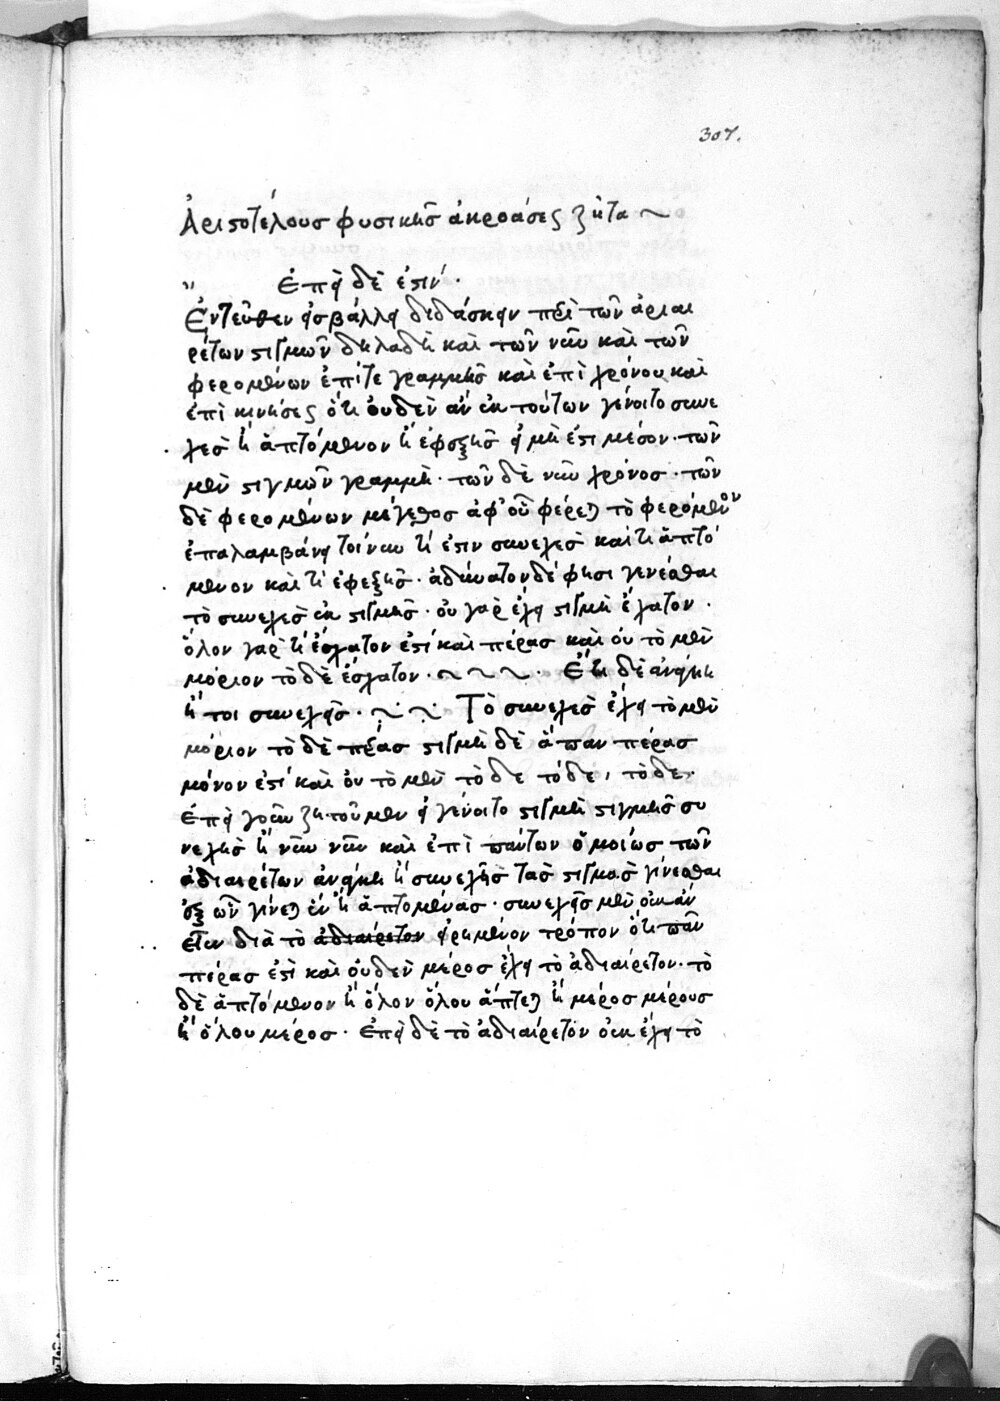 307.
Ἀριστοτέλους φυσικῆς ἀκροάσεως ζῆτα ~
" Ἐπεὶ δὲ ἐστίν.
Ἐντεῦθεν εἰσβάλλει διδάσκειν περὶ τῶν ἀδιαι
ρέτων στιγμῶν δηλαδὴ καὶ τῶν νῦν καὶ τῶν
φερομένων ἐπί τε γραμμῆς καὶ ἐπὶ χρόνου καὶ
ἐπὶ κινήσεως ὅτι οὐδὲν ἂν ἐκ τούτων γένοιτο συνε
χὲς ἢ ἁπτόμενον ἢ ἐφεξῆς εἰ μή ἐστι μέσον· τῶν
μὲν στιγμῶν γραμμή· τῶν δὲ νῦν χρόνος· τῶν
δὲ φερομένων μέγεθος ἀφ' οὗ φέρεται τὸ φερόμενον
ἐπαλαμβάνει τοίνυν τί ἐστιν συνεχὲς καὶ τί ἁπτό
μενον καὶ τί ἐφεξῆς· ἀδύνατον δέ φησι γενέσθαι
τὸ συνεχὲς ἐκ στιγμῆς· οὐ γὰρ ἔχει στιγμὴ ἔσχατον·
ὅλον γάρ τι ἔσχατόν ἐστι καὶ πέρας καὶ οὐ τὸ μὲν
μόριον τὸ δὲ ἔσχατον· ~ ~ ~ · Ἔτι δὲ ἀνάγκη
ἤτοι συνεχεῖς· ~ ~ Τὸ συνεχὲς ἔχει τὸ μὲν
μόριον τὸ δὲ πέρας στιγμὴ δὲ ἅπαν πέρας
μόνον ἐστί καὶ οὐ τὸ μὲν τὸ δε τόδε, τὸ δε·
Ἐπεὶ γοῦν ζητοῦμεν εἰ γένοιτο στιγμὴ στιγμῆς συ
νεχὴς ἢ νῦν νῦν καὶ ἐπὶ πάντων ὁμοίως τῶν
ἀδιαιρέτων ἀνάγκη ἢ συνεχεῖς τὰς στιγμὰς γίνεσθαι
ἐξ ὧν γίνεται ἓν ἢ ἁπτομένας· συνεχεῖς μὲν οὐκ ἂν
εἶεν διὰ τὸ ἀδιαίρετον εἰρημένον τρόπον ὅτι πᾶν
πέρας ἐστὶ καὶ οὐδὲν μέρος ἔχει τὸ ἀδιαίρετον· τὸ
δὲ ἁπτόμενον ἢ ὅλον ὅλου ἅπτεται ἢ μέρος μέρους
ἢ ὅλου μέρος· Ἐπεὶ δὲ τὸ ἀδιαίρετον οὐκ ἔχει τὸ